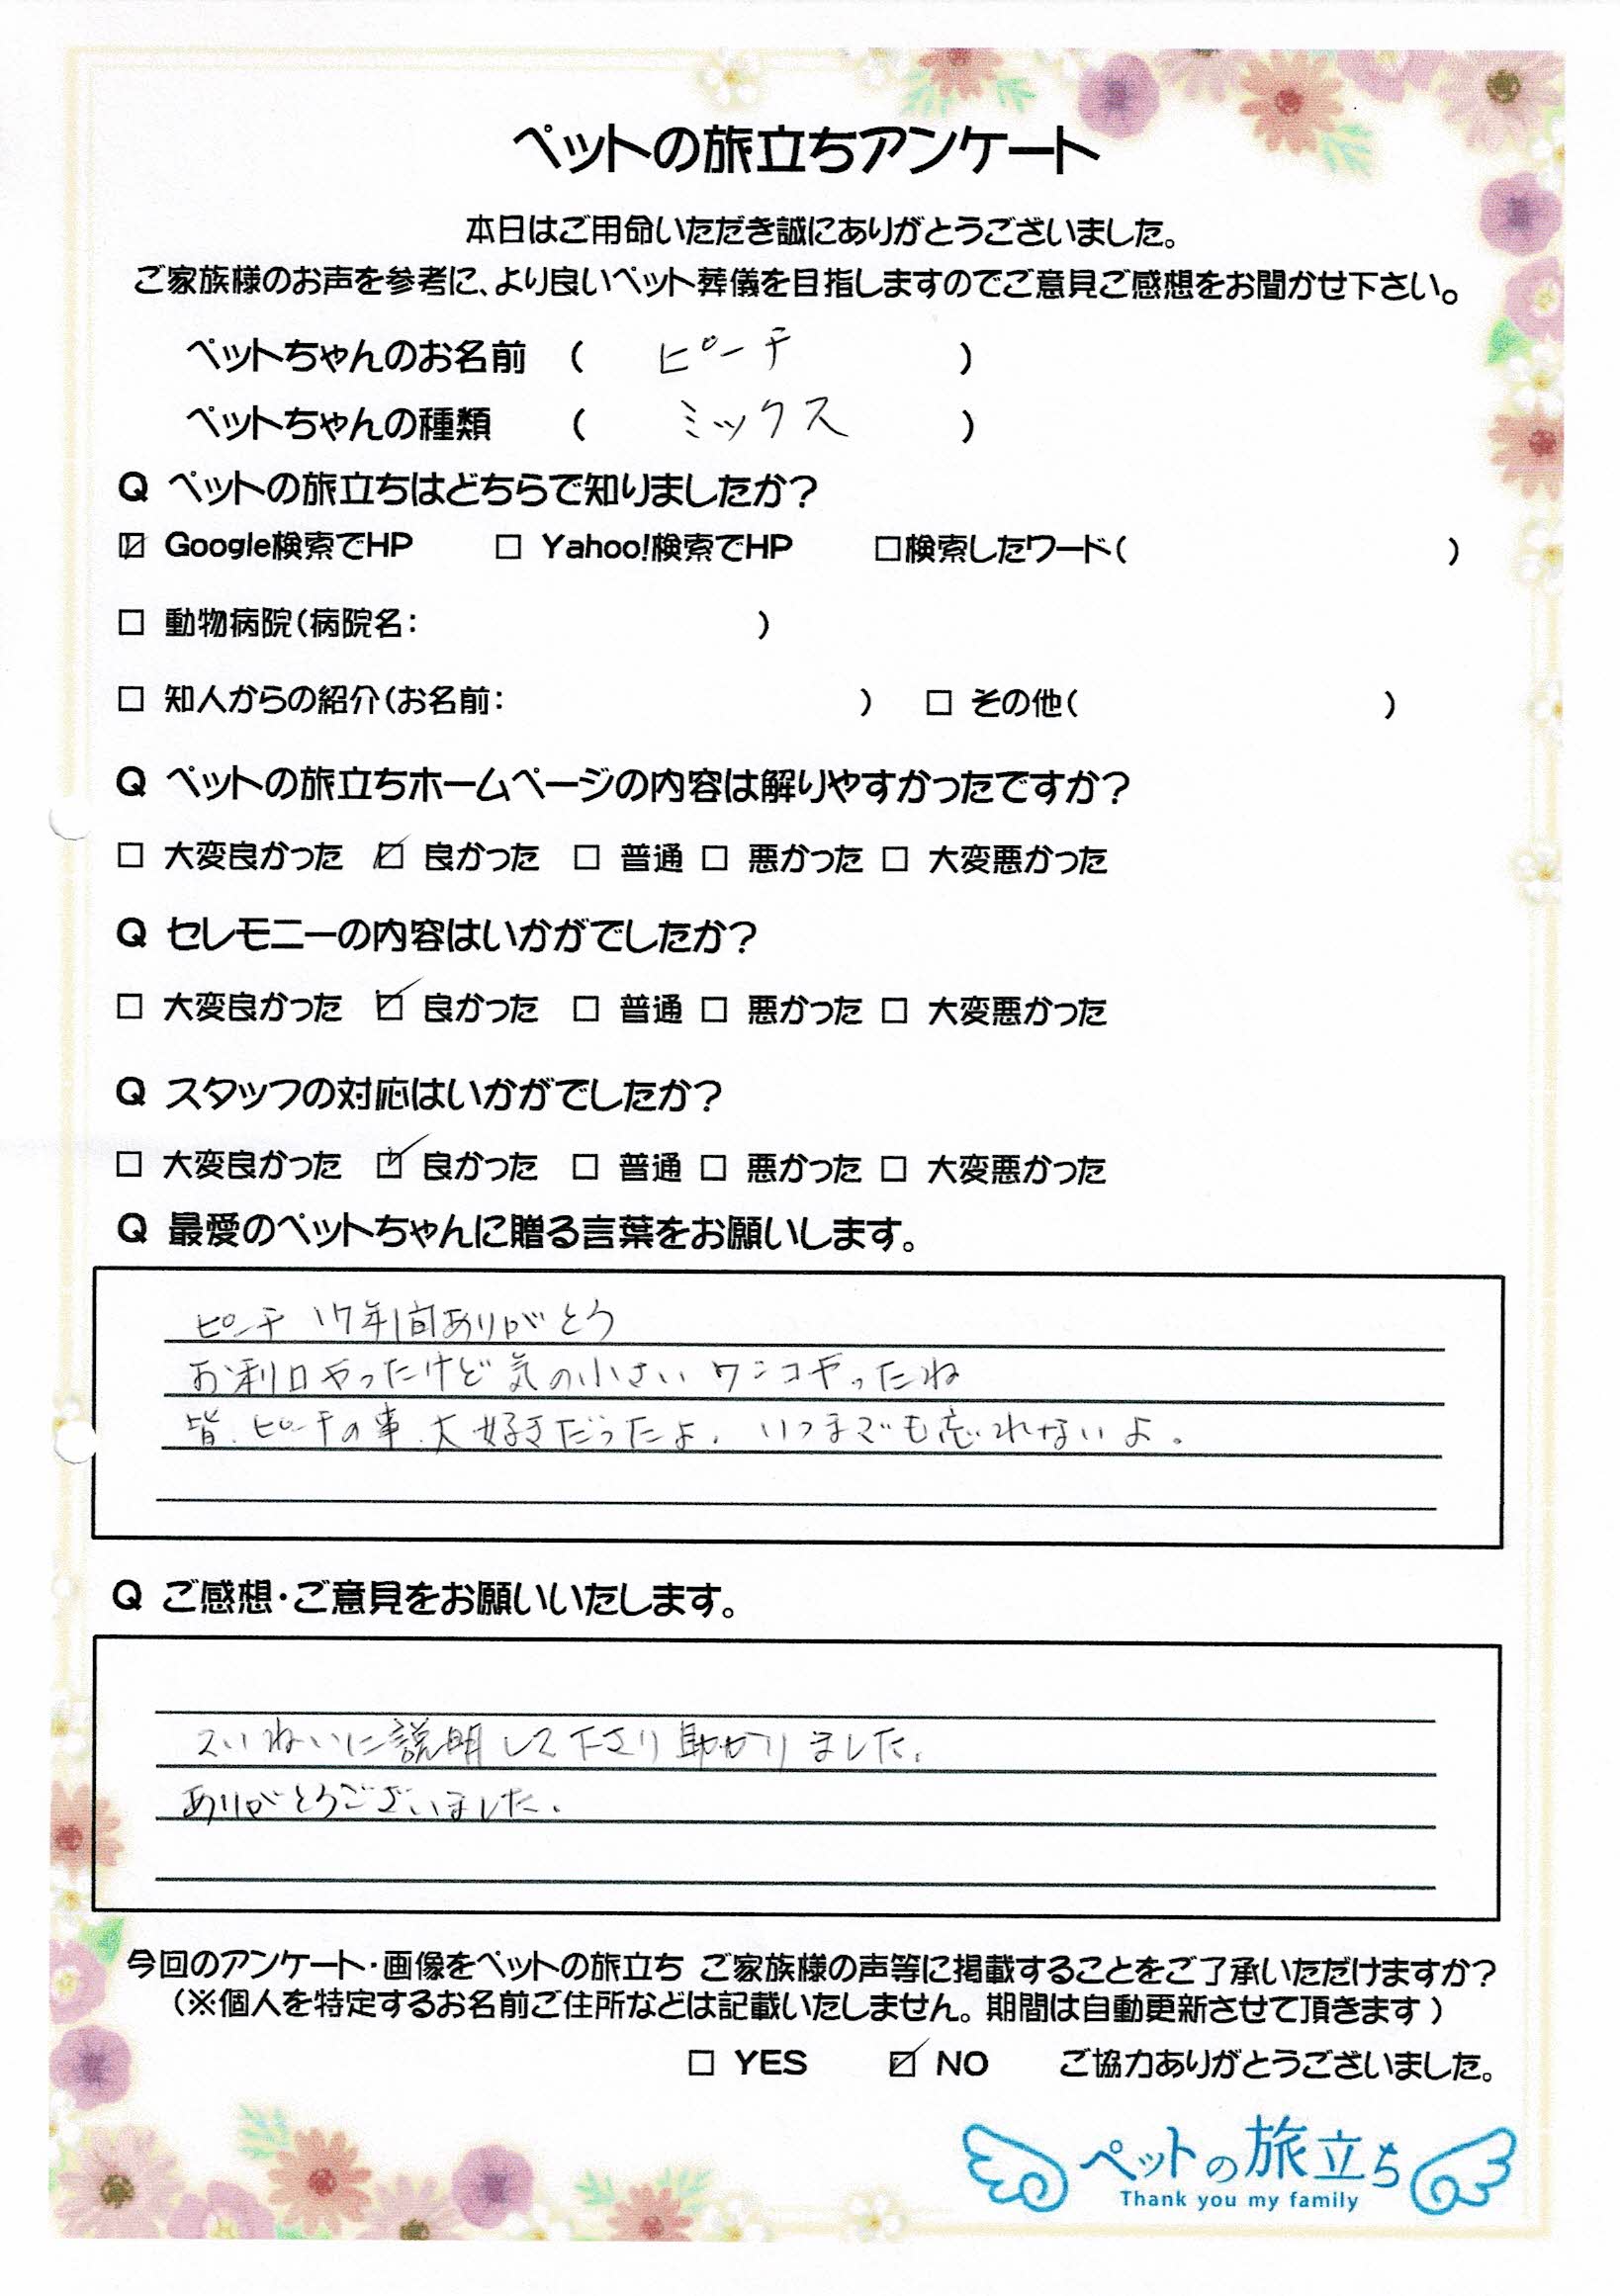 ペットの旅立ちアンケート
本日はご用命いただき誠にありがとうございました。
ご家族様のお声を参考に、より良いペット葬儀を目指しますのでご意見ご感想をお聞かせ下さい。
ペットちゃんのお名前 ( ピーチ )
ペットちゃんの種類 ( ミックス )
Q ペットの旅立ちはどちらで知りましたか?
☑ Google検索でHP □ Yahoo!検索でHP □検索したワード( )
□ 動物病院(病院名: )
□ 知人からの紹介(お名前: ) □ その他( )
Q ペットの旅立ちホームページの内容は解りやすかったですか?
□ 大変良かった ☑ 良かった □ 普通 □ 悪かった □ 大変悪かった
Q セレモニーの内容はいかがでしたか?
□ 大変良かった ☑ 良かった □ 普通 □ 悪かった □ 大変悪かった
Q スタッフの対応はいかがでしたか?
□ 大変良かった ☑ 良かった □ 普通 □ 悪かった □ 大変悪かった
Q 最愛のペットちゃんに贈る言葉をお願いします。
ピーチ 17年間ありがとう
お利口やったけど気の小さいワンコやったね
皆、ピーチの事、大好きだったよ。いつまでも忘れないよ。
Q ご感想・ご意見をお願いいたします。
ていねいに説明して下さり助かりました。
ありがとうございました。
今回のアンケート・画像をペットの旅立ち ご家族様の声等に掲載することをご了承いただけますか?
(※個人を特定するお名前ご住所などは記載いたしません。期間は自動更新させて頂きます)
□ YES ☑ NO ご協力ありがとうございました。
ペットの旅立ち
Thank you my family